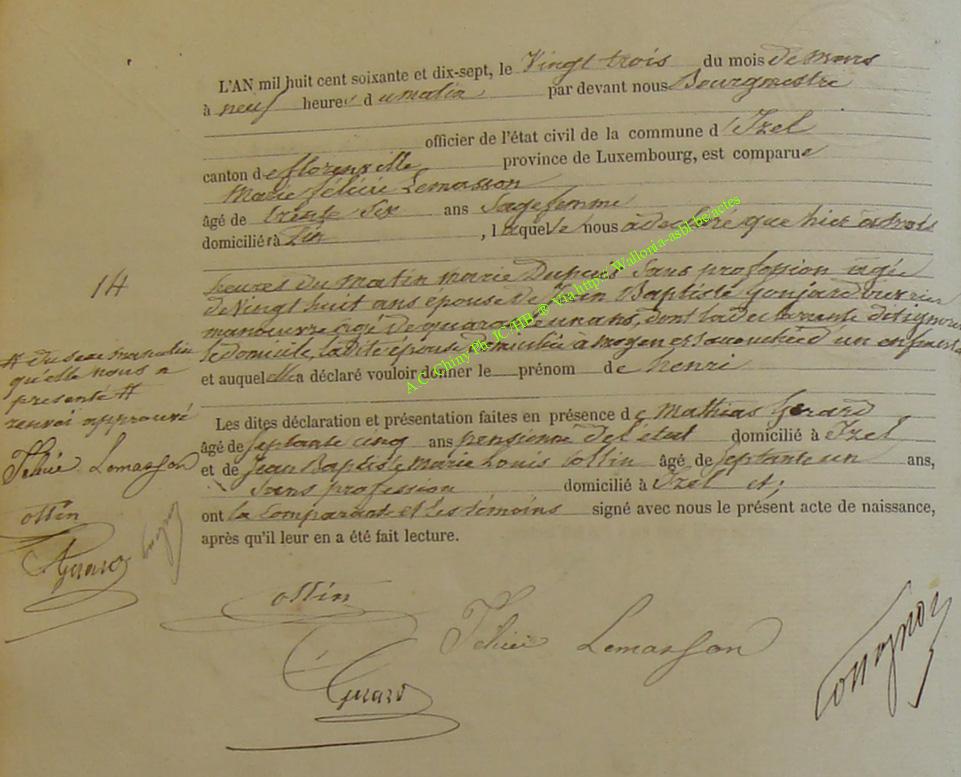 L'AN mil huit cent soixante et dix-sept, le Vingt trois du mois de Mars
à neuf heures du matin par devant nous Bourgmestre
officier de l'état civil de la commune d'Izel
canton de florenville province de Luxembourg, est comparue
Marie félicie Lemasson
âgé de trente six ans Sagefemme
domicilié à , laquelle nous a declaré que hier à trois
14
heures du matin marie Dupuis Sans profession agée
de Vingt huit ans epouse de Jean Baptiste gonjard ouvrier
manouvre agé de quarante un ans, dont la declarante dit ignorer
le domicile, la dite épouse domiciliée a moyen est accouchée d'un enfant #
et auquel elle a déclaré vouloir donner le prénom de henri
# du sexe masculin
qu'elle nous a
presenté #
renvoi approuvé
Félicie Lemasson
ottin
Gerard
Les dites déclaration et présentation faites en présence de Mathias Gerard
âgé de septante cinq ans pensionné de l'état domicilié à Izel
et de Jean Baptiste marie Louis Collin âgé de septante un ans,
Sans profession domicilié à Izel et;
ont la Comparante et les témoins signé avec nous le présent acte de naissance,
après qu'il leur en a été fait lecture.
ottin
Félicie Lemasson
Gerard
A.C. Chiny Ph. JC./HB ® Via http://Wallonia-asbl.be/actes